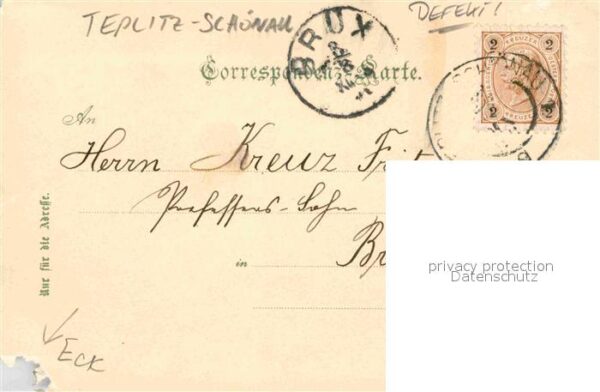 TEPLITZ-SCHÖNAU
DEFEKT!
BRÜX
Correspondenz-Karte.
2 KREUZER 2
SCHÖNAU
2 KREUZER 2
An
Herrn Kreuz
Professors-Sohn
in
Nur für die Adresse.
ECK
privacy protection
Datenschutz